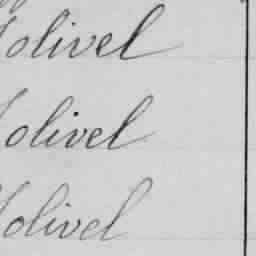 Jolivel
Jolivel
Jolivel